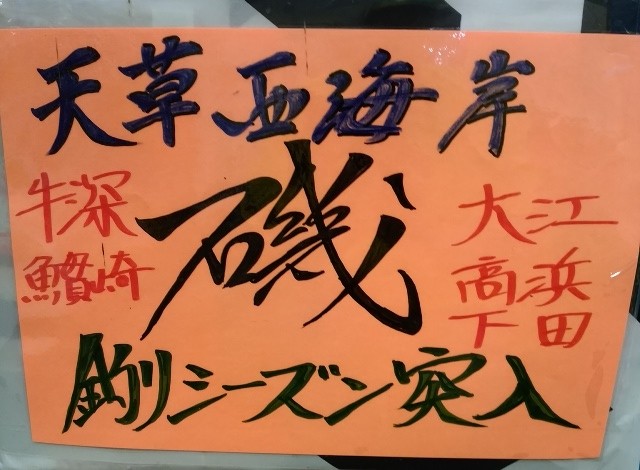 天草西海岸
磯
牛深
鱶崎
大江
高浜
下田
釣りシーズン突入